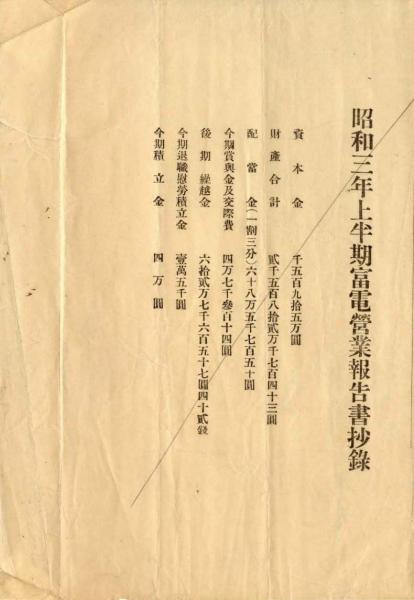 昭和三年上半期富電營業報告書抄錄
資本金 千五百九拾五万圓
財產合計 貳千五百八拾貳万千七百四十三圓
配當金(一割三分)六十八万五千七百五十圓
今期賞與金及交際費 四万七千叄百十四圓
後期繰越金 六拾貳万七千六百五十七圓四十貳錢
今期退職慰勞積立金 壹萬五千圓
今期積立金 四万圓